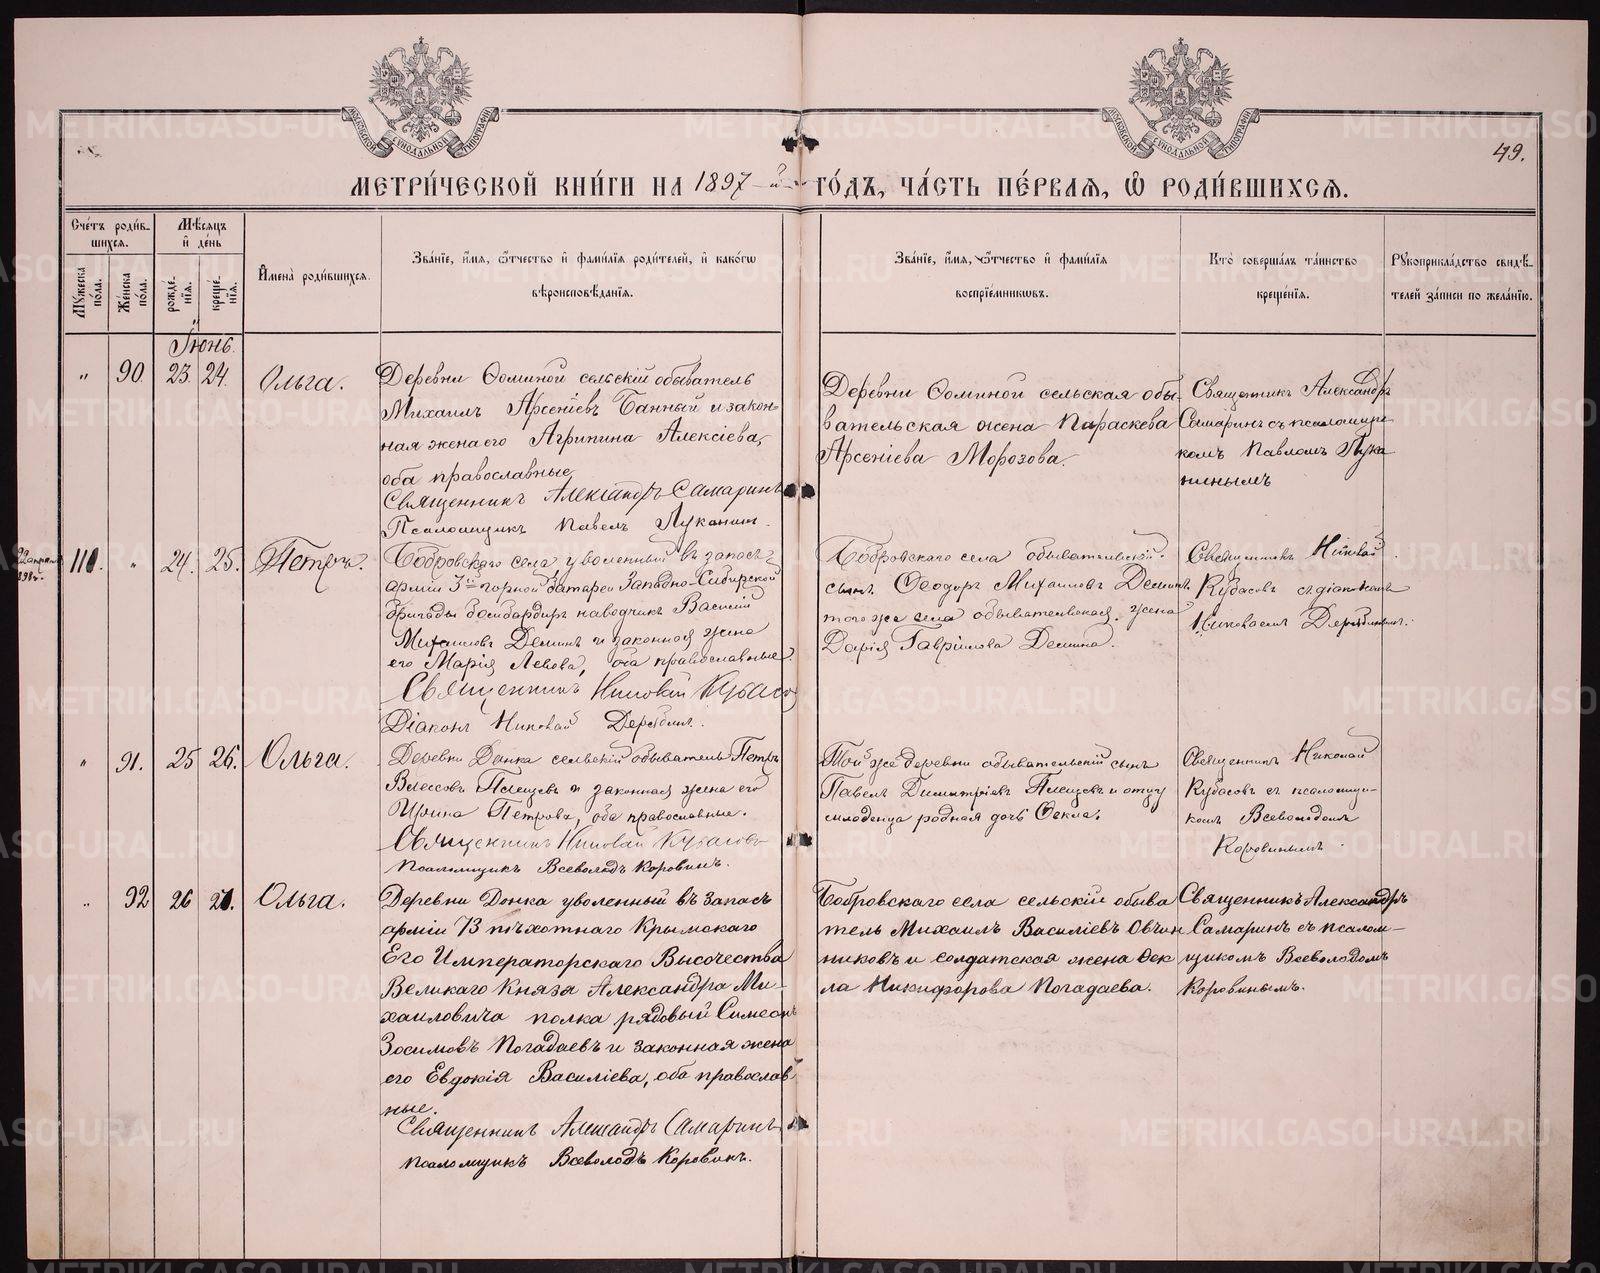 МОСКОВСКОЙ СѴНОДАЛЬНОЙ ТИПОГРАФІИ
МОСКОВСКОЙ СѴНОДАЛЬНОЙ ТИПОГРАФІИ
49.
МЕТРИ́ЧЕСКОЙ КНИ́ГИ НА 1897-й ГО́ДЪ, ЧА́СТЬ ПЕ́РВАѦ, Ѽ РОДИ́ВШИХСѦ.
Сче́тъ роди́в-
шихся.
Мꙋжеска по́ла.
Же́нска по́ла.
Мѣ́сяцъ
и҆ де́нь
рожде́-нїя.
креще́-нїя.
И҆мена̀ роди́вшихся.
Зва́нїе, и҆́мя, ѻ҆́тчество и҆ фами́лїя роди́телей, и҆ како́гѡ
вѣроисповѣ́данїя.
Зва́нїе, и҆́мя, ѻ҆́тчество и҆ фами́лїя
воспрїе́мникѡвъ.
Кто̀ соверша́лъ та́инство
креще́нїя.
Рꙋкоприкла́дство свидѣ́-
телей за́писи по жела́нїю.
Іюнь.
" 90. 23. 24. Ольга.
Деревни Ѳоминой сельскій обыватель
Михаилъ Арсеніевъ Банный и закон-
ная жена его Агрипина Алексіева,
оба православные
Священникъ Александръ Самаринъ
Псаломщикъ Павелъ Луканинъ.
Деревни Ѳоминой сельская обы-
вательская жена Параскева
Арсеніева Морозова.
Священникъ Александръ
Самаринъ съ псаломщи
комъ Павломъ Лука
нинымъ
110. " 24. 25. Петръ.
Бобровскаго села уволенный въ запасъ
арміи 3й горной батареи Западно-Сибирской
бригады бомбардиръ наводчикъ Василій
Михаиловъ Деминъ и законная жена
его Марія Левова, оба православные.
Священникъ Николай Кубасо
Діаконъ Николай Дерябинъ.
Бобровскаго села обывательскій
сынъ Ѳеодоръ Михаиловъ Деминъ
того же села обывательская жена
Дарія Гавріилова Демина.
Священникъ Николай
Кубасовъ съ діакономъ
Николаемъ Дерябинымъ.
" 91. 25 26. Ольга.
Деревни Донка сельскій обыватель Петръ
Власовъ Плещевъ и законная жена его
Ирина Петрова, оба православные.
Священникъ Николай Кубасовъ
Псаломщикъ Всеволодъ Коровинъ.
Той же деревни обывательскій сынъ
Павелъ Димитріевъ Плещевъ и отцу
младенца родная дочь Ѳекла.
Священникъ Николай
Кубасовъ съ псаломщи-
комъ Всеволодомъ
Коровинымъ.
" 92 26 Ольга.
Деревни Донка уволенный въ запасъ
арміи 73 пѣхотнаго Крымскаго
Его Императорскаго Высочества
Великаго Князя Александра Ми-
хаиловича полка рядовый Симеонъ
Зосимовъ Погадаевъ и законная жена
его Евдокія Василіева, оба православ
ные.
Священникъ Александръ Самаринъ
Псаломщикъ Всеволодъ Коровинъ.
Бобровскаго села сельскій обыва
тель Михаилъ Василіевъ Овчин
никовъ и солдатская жена Ѳек
ла Никифорова Погадаева.
Священникъ Александръ
Самаринъ съ псалом-
щикомъ Всеволодомъ
Коровинымъ.
METRIKI.GASO-URAL.RU